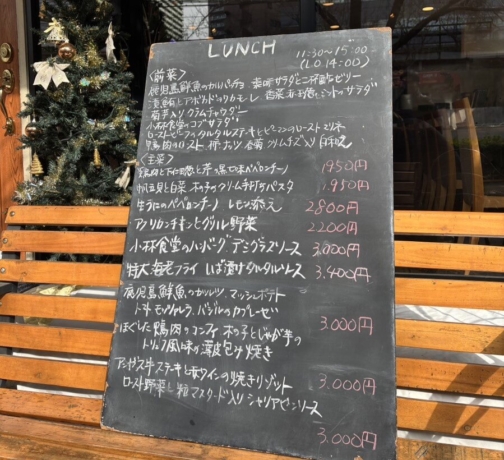 LUNCH
11:30~15:00
(L.O.14:00)
〈前菜〉
鹿児島鮮魚のカルパッチョ 香味サラダと二杯酢ゼリー
漬鮪とアボカドのワカモーレ 香菜 赤玉葱とミントのサラダ
菊芋入りクラムチャウダー
小林食堂のコブサラダ
ローストビーフのタルタルステーキとピーマンのロースト
鴨肉のロースト 柿 春菊 クリームチーズ入り白和え
〈主菜〉
鶏肉と下仁田葱と黒七味ペペロンチーノ 1950円
帆立貝と白菜 木の子のクリームパスタ 1.950円
生うにのペペロンチーノ レモン添え 2800円
アメリカンチキンとグリル野菜 2200円
小林食堂のハンバーグ デミグラスソース 3,000円
特大海老フライ いぶり漬けタルタルソース 3.400円
鹿児島鮮魚のカツレツ マッシュポテト
トマト モッツァレラ バジルのカプレーゼ 3.000円
ほぐした鴨肉のコンフィ 木の子とじゃが芋の
トリュフ風味の薄皮包み焼き 3.000円
アンガス牛ステーキと赤ワインの焼きリゾット
ロースト野菜と粒マスタード入りシャリアピンソース
3.000円